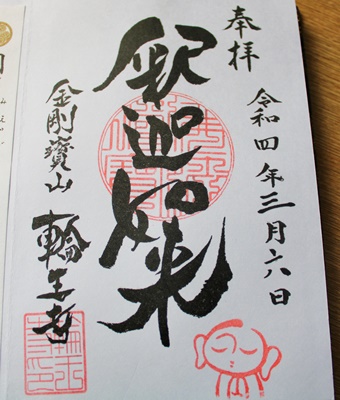 奉拝
令和四年三月六日
釈迦如来
金剛寶山
輪王寺